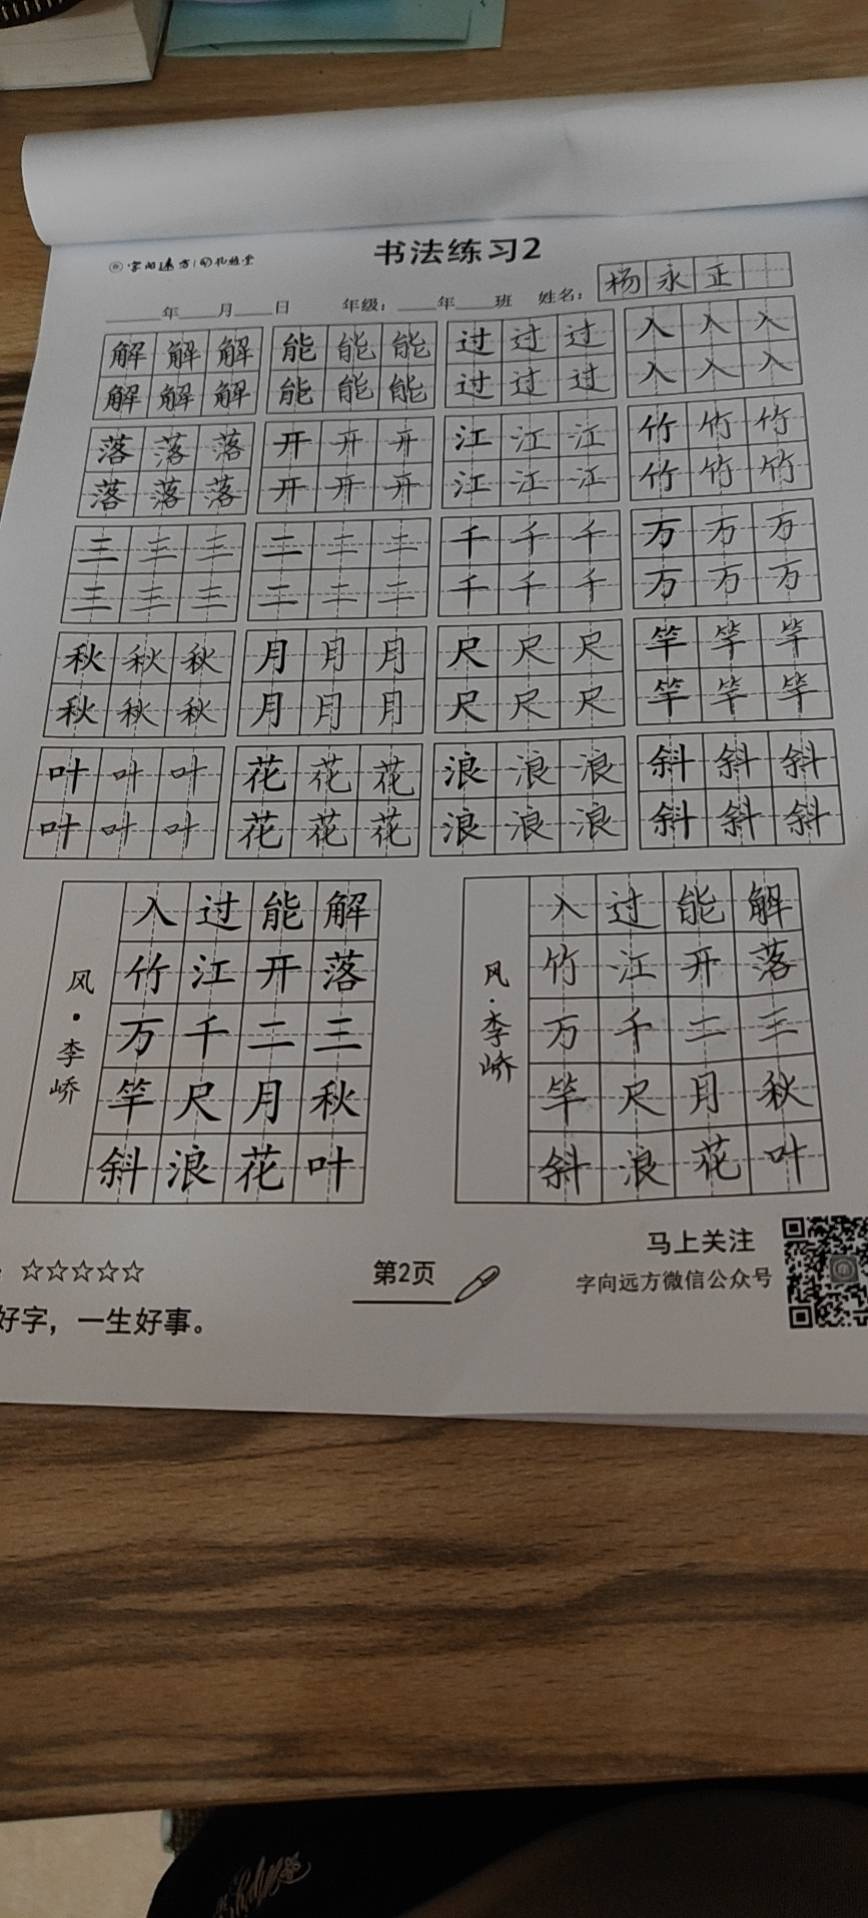 书法练习2
年 月 日 年级: 年 班 姓名: 杨永正
解解解 能能能 过过过 入入入
解解解 能能能 过过过 入入入
落落落 开开开 江江江 竹竹竹
落落落 开开开 江江江 竹竹竹
三三三 二二二 千千千 万万万
三三三 二二二 千千千 万万万
秋秋秋 月月月 尺尺尺 竿竿竿
秋秋秋 月月月 尺尺尺 竿竿竿
叶叶叶 花花花 浪浪浪 斜斜斜
叶叶叶 花花花 浪浪浪 斜斜斜
解落三秋叶
能开二月花
过江千尺浪
入竹万竿斜
风·李峤
解落三秋叶
能开二月花
过江千尺浪
入竹万竿斜
风·李峤
☆☆☆☆☆
好字,一生好事。
第2页
马上关注
字向远方微信公众号